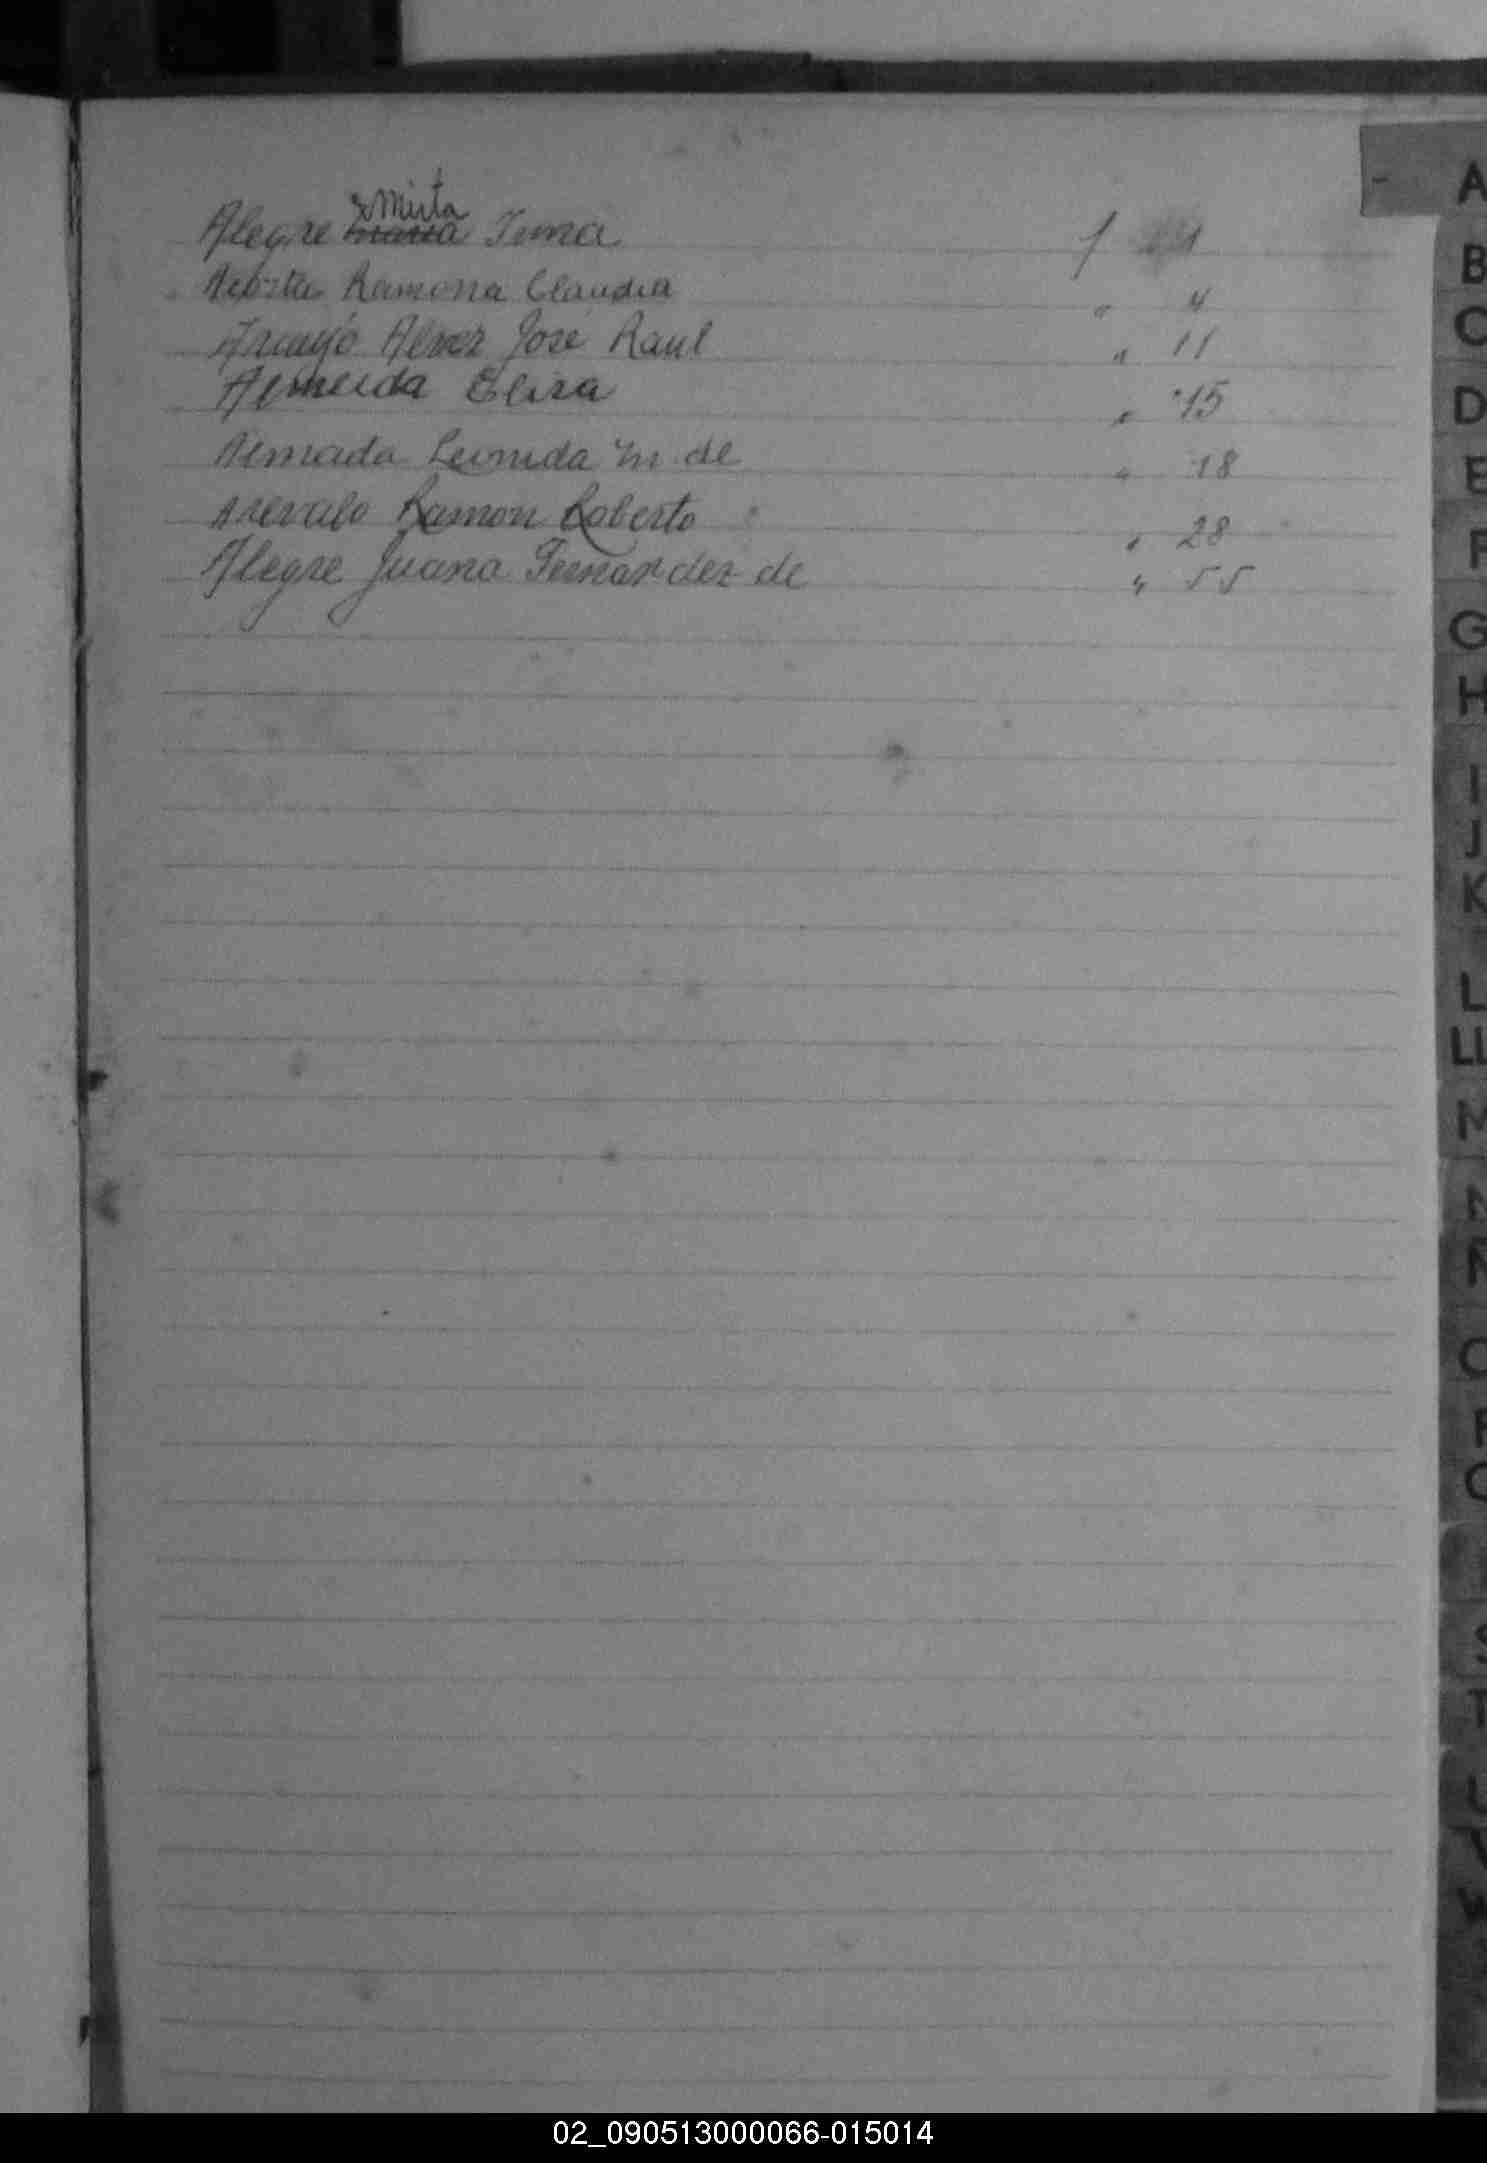 Mirta
Alegre Maria Irma f 1
Acosta Ramona Claudia " 4
Araujo Alvez José Raul " 11
Almeida Elisa " 15
Almada Leonida M. de " 18
Arevalo Ramon Roberto " 28
Alegre Juana Fernandez de " 55
A
B
C
D
E
F
G
H
I
J
K
L
LL
M
N
Ñ
O
P
Q
S
T
U
V
W
02_090513000066-015014